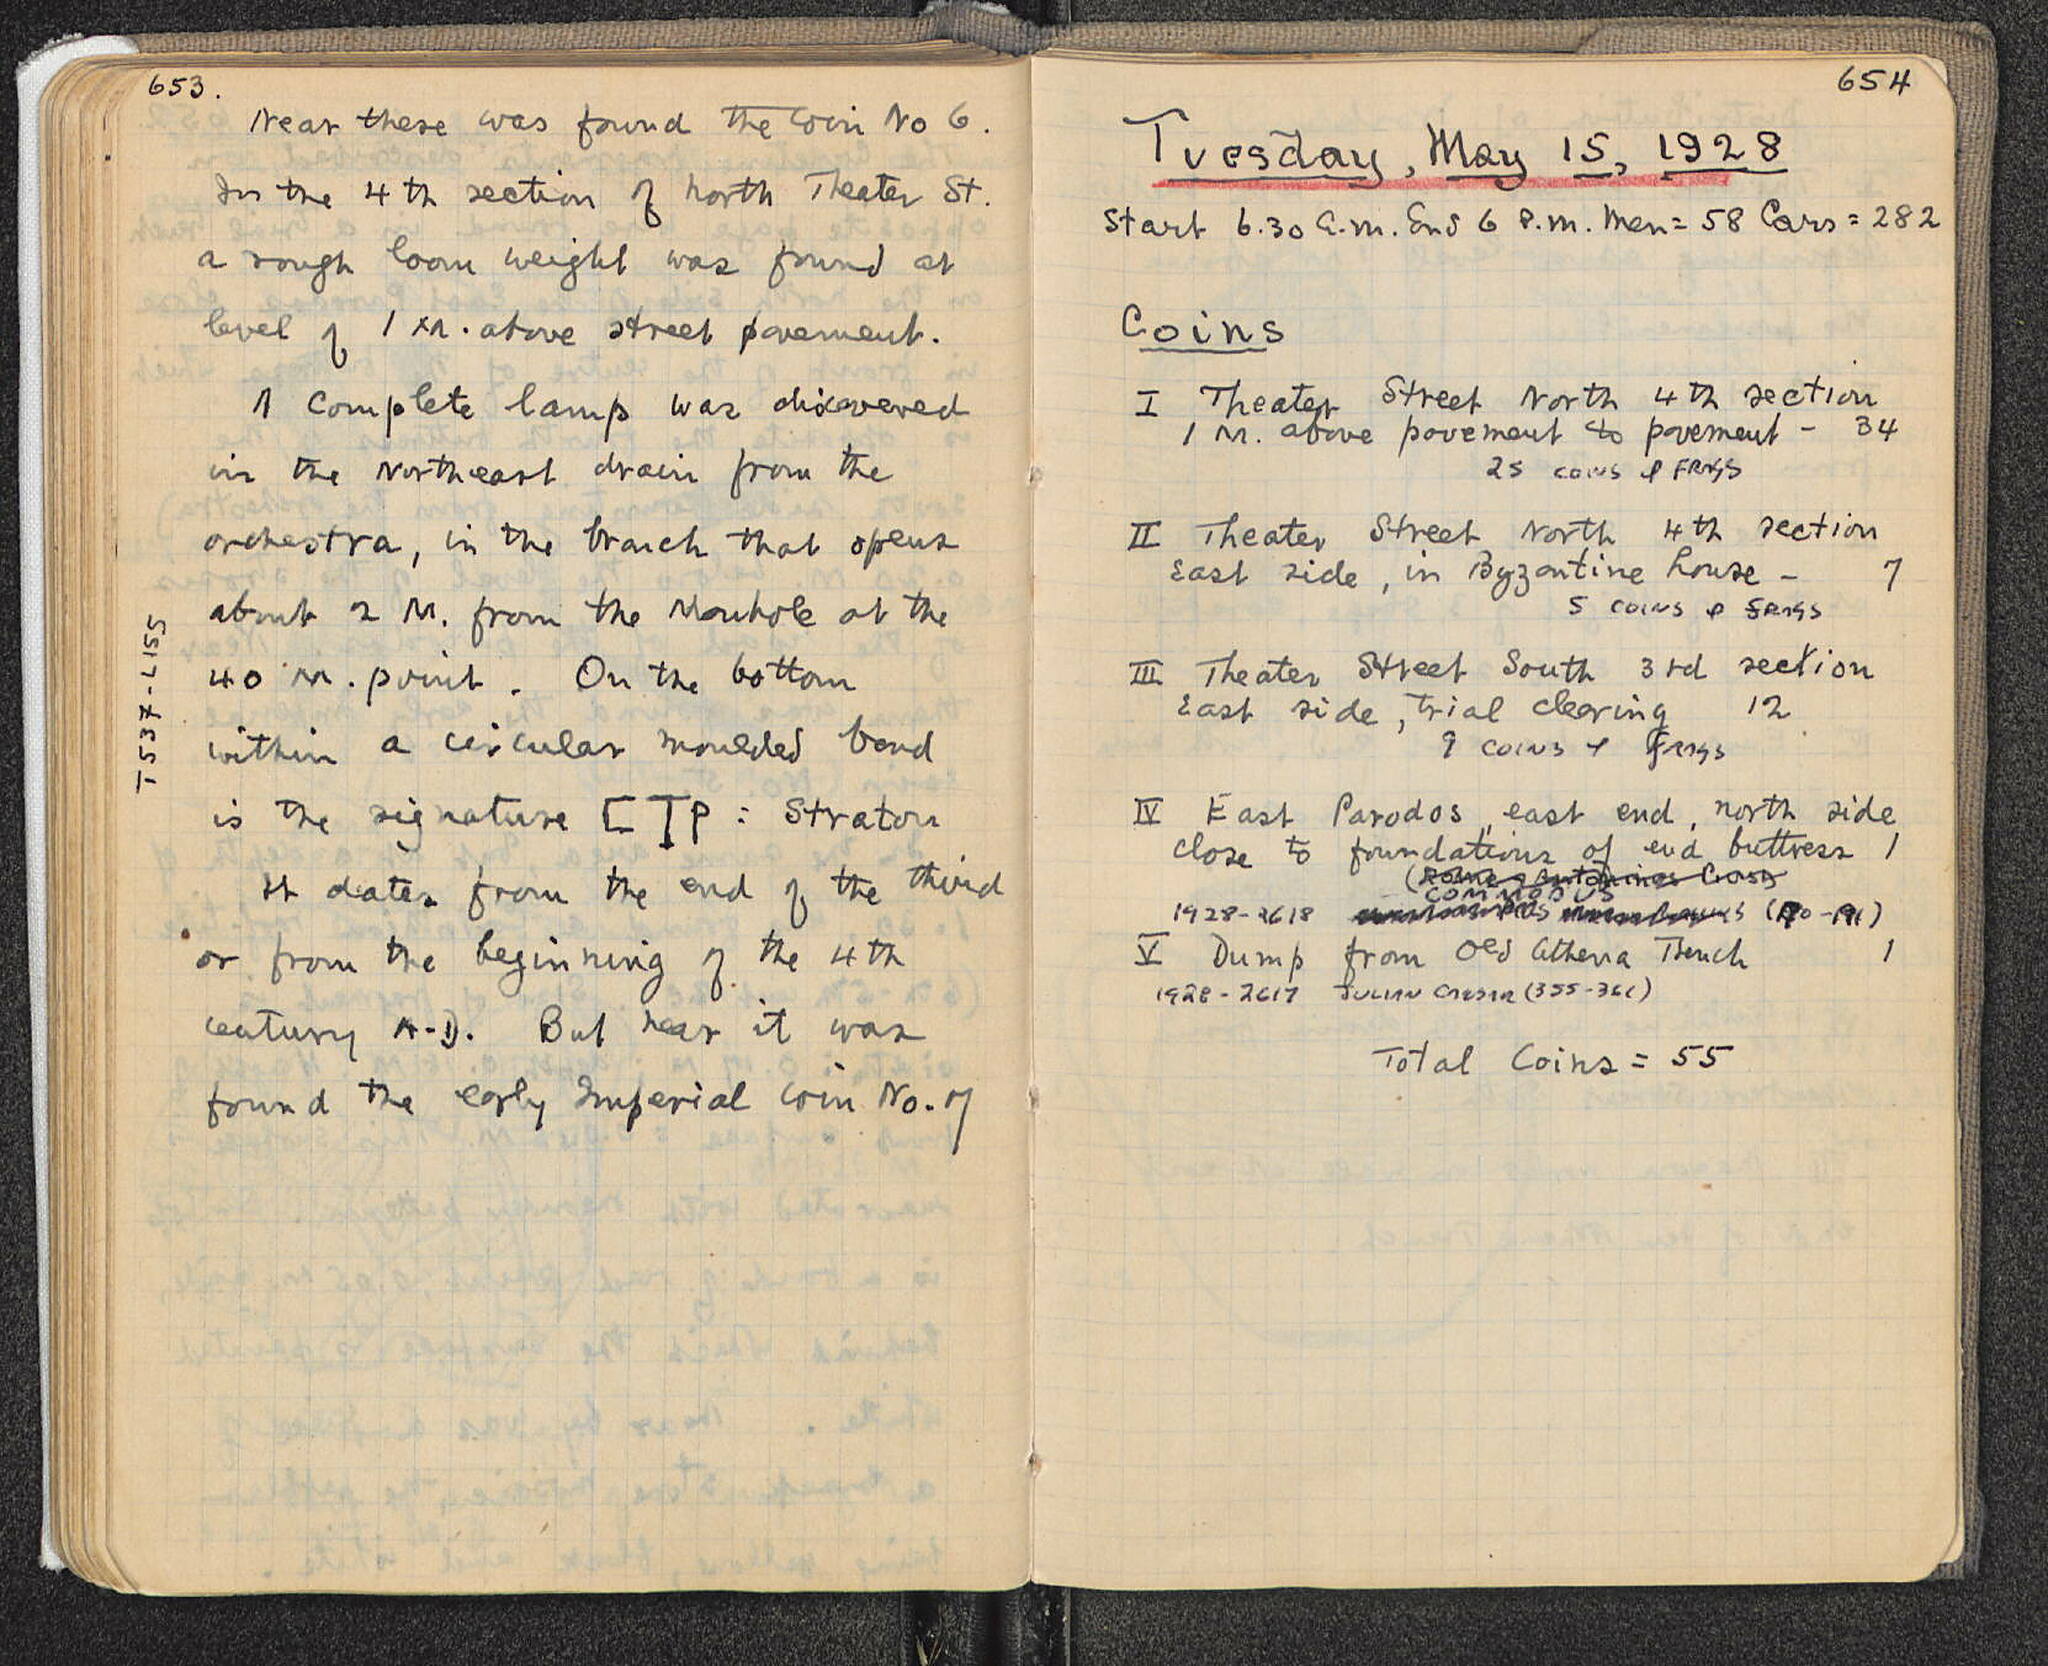 653.
Near these was found the Coin No 6.
In the 4th section of North Theater St.
a rough loom weight was found at
level of 1 M. above street pavement.
A Complete lamp was discovered
in the Northeast drain from the
orchestra, in the branch that opens
about 2 M. from the Manhole at the
40 M. point. On the bottom
within a circular moulded band
is the signature [ T P : Straton
It dates from the end of the third
or from the beginning of the 4th
century A.D. But near it was
found the early Imperial Coin No. 7
T537-L155
654
Tuesday, May 15, 1928
Start 6.30 a.m. End 6 P.m. Men = 58 Cars = 282
Coins
I Theater Street North 4th section
1 M. above pavement to pavement - 34
25 coins & FRAGS
II Theater Street North 4th section
East side, in Byzantine house - 7
5 coins & FRAGS
III Theater Street South 3rd section
East side, trial clearing 12
9 coins & FRAGS
IV East Parodos, east end, north side
close to foundations of end buttress 1
COMMODUS
1928-2618
V Dump from Old Athena Trench 1
1928-2617 JULIAN CAESAR (355-361)
Total Coins = 55